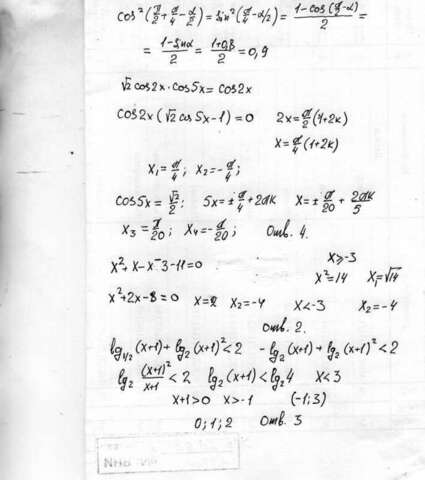 cos²(π/2 + π/4 - α/2) = sin²(π/4 - α/2) = (1 - cos(π/2 - α))/2 =
= (1 - sinα)/2 = (1 + 0,8)/2 = 0,9
√2 cos2x · cos5x = cos2x
cos2x(√2 cos5x - 1) = 0   2x = π/2(1+2k)
x = π/4(1+2k)
x₁ = π/4; x₂ = -π/4;
cos5x = √2/2: 5x = ±π/4 + 2πk   x = ±π/20 + 2πk/5
x₃ = π/20; x₄ = -π/20;   Отв. 4.
x² + x - x - 3 - 11 = 0   x ≥ -3
x² = 14   x₁ = √14
x² + 2x - 8 = 0   x = 2   x₂ = -4   x < -3   x₂ = -4
Отв. 2.
lg₁/₂(x+1) + lg₂(x+1)² < 2   -lg₂(x+1) + lg₂(x+1)² < 2
lg₂ (x+1)²/(x+1) < 2   lg₂(x+1) < lg₂4   x < 3
x+1 > 0   x > -1   (-1; 3)
0; 1; 2   Отв. 3